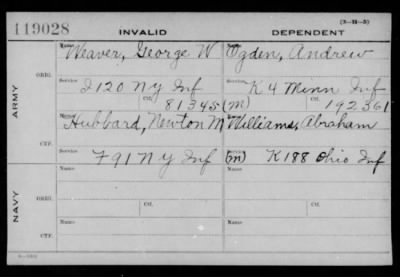 119028 INVALID DEPENDENT (3-M-5)
Name Weaver, George W Ogden, Andrew
ARMY ORIG. Service I 120 N Y Inf Service K 4 Minn Inf
Ctf. 81345 (M) Ctf. 192361
Name Hubbard, Newton M Williams, Abraham
CTF. Service F 91 N Y Inf (M) K 188 Ohio Inf
Name Name
NAVY ORIG.
Ctf. Ctf.
Name Name
CTF.